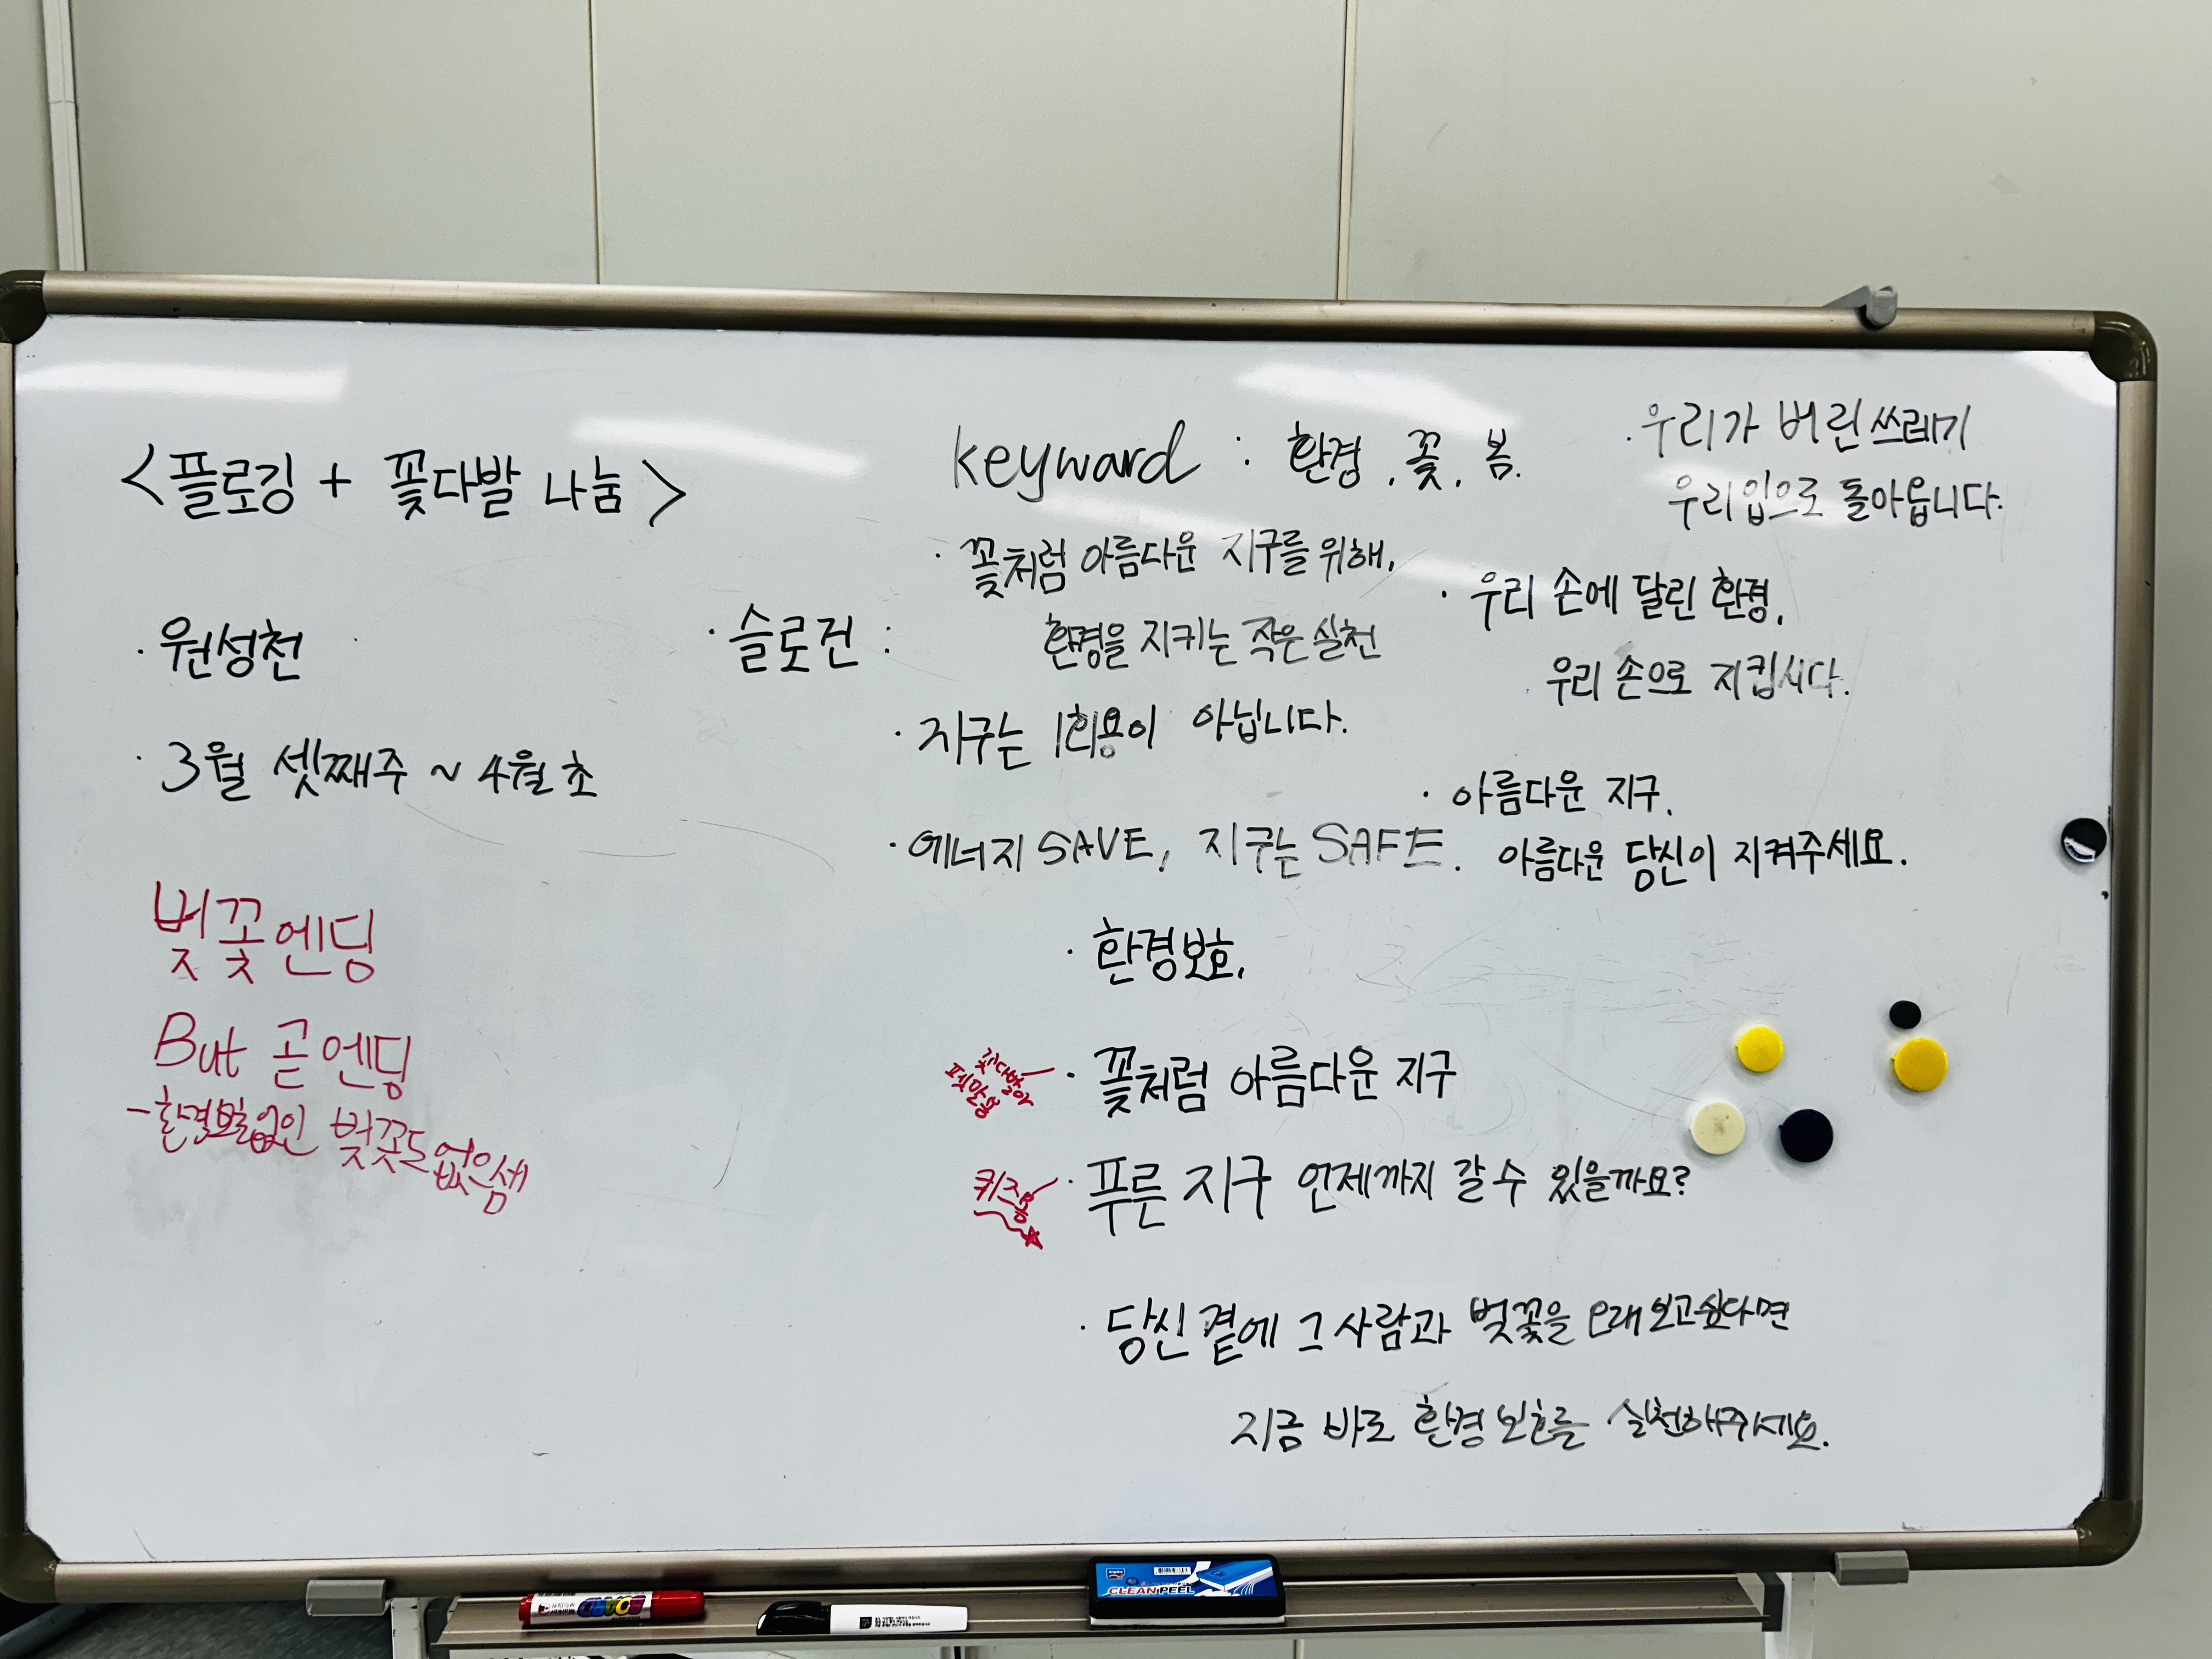 <플로깅 + 꽃다발 나눔>
· 원성천
· 3월 셋째주 ~ 4월 초
벚꽃엔딩
But 곧 엔딩
벚꽃도 없은세
keyward : 환경, 꽃, 봄.
· 슬로건 :
· 꽃처럼 아름다운 지구를 위해,
환경을 지키는 작은 실천
· 지구는 1회용이 아닙니다.
· 에너지 SAVE, 지구는 SAFE.
· 우리가 버린 쓰레기
우리 입으로 돌아옵니다.
· 우리 손에 달린 환경,
우리 손으로 지킵시다.
· 아름다운 지구,
아름다운 당신이 지켜주세요.
· 환경보호,
꽃다발
· 꽃처럼 아름다운 지구
퀴즈용
· 푸른 지구 언제까지 갈 수 있을까요?
· 당신 곁에 그 사람과 벚꽃을 오래 보고싶다면
지금 바로 환경 보호를 실천해주세요.
BOARD
Alpha
CLEAN PEEL